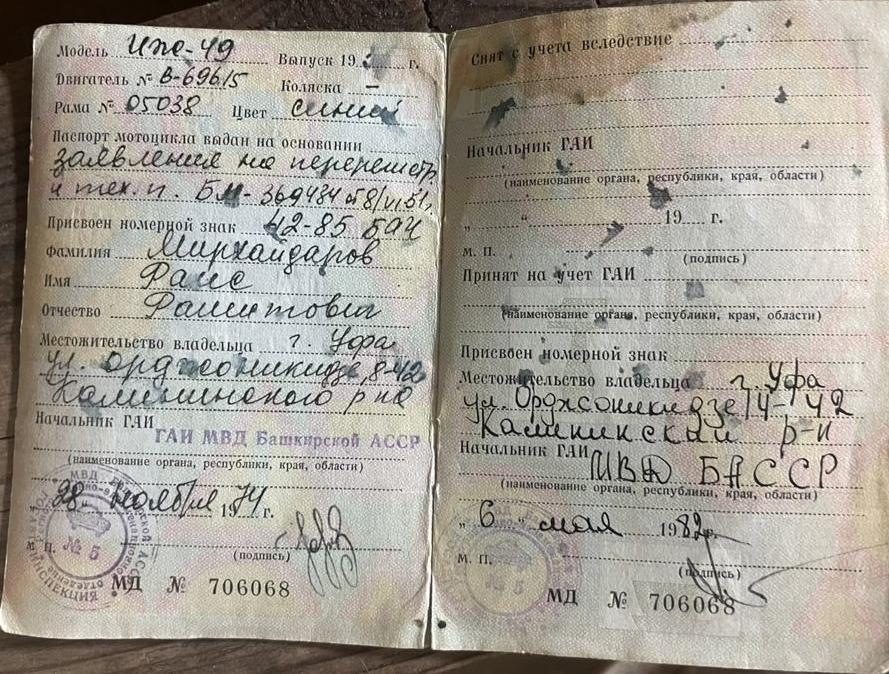 Модель Иж-49 Выпуск 19 г.
Двигатель № В-69615 Коляска —
Рама № 05038 Цвет синий
Паспорт мотоцикла выдан на основании
заявления на перерегистр
и тех. п. БМ-369484 от 8/VI 51г.
Присвоен номерной знак 42-85 БАЧ
Фамилия Мирхайдаров
Имя Фаис
Отчество
Местожительство владельца г. Уфа
ул. Орджоникидзе, 8-42
Калининского р-на
Начальник ГАИ
ГАИ МВД Башкирской АССР
(наименование органа, республики, края, области)
„28" ноября 1974 г.
М. П.
(подпись)
№ 5
МД № 706068
Снят с учета вследствие
Начальник ГАИ
(наименование органа, республики, края, области)
„ " 19 г.
М. П.
(подпись)
Принят на учет ГАИ
(наименование органа, республики, края, области)
Присвоен номерной знак
Местожительство владельца г. Уфа
ул. Орджоникидзе 14-42
Калининский р-н
Начальник ГАИ МВД БАССР
(наименование органа, республики, края, области)
„6" мая 1982г.
М. П.
(подпись)
№ 5
МД № 706068